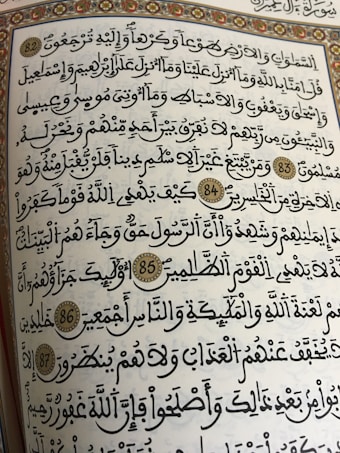 سورة آل عمران
السماوات والارض طوعا وكرها وإليه ترجعون 82
قل امنا بالله وما أنزل علينا وما أنزل على إبراهيم وإسماعيل
وإسحاق ويعقوب والاسباط وما أوتي موسى وعيسى
والنبيئون من ربهم لا نفرق بين أحد منهم ونحن له
مسلمون 83 ومن يبتغ غير الاسلم دينا فلن يقبل منه وهو
في الاخرة من الخاسرين 84 كيف يهدي الله قوما كفروا
بعد إيمانهم وشهدوا أن الرسول حق وجاءهم البينات
والله لا يهدي القوم الظالمين 85 أولئك جزاؤهم أن
عليهم لعنة الله والملائكة والناس أجمعين 86 خالدين
لا يخفف عنهم العذاب ولا هم ينظرون 87 إلا
تابوا من بعد ذلك وأصلحوا فإن الله غفور رحيم